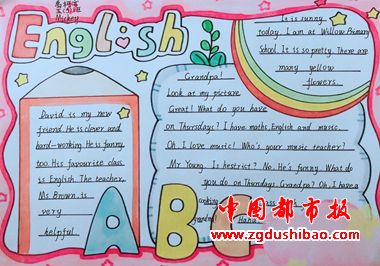 五(3)班
Mickey
English
It is sunny
today. I am at Willow Primary
School. It is so pretty. There are
many yellow
flowers.
Grandpa!
Look at my picture.
Great! What do you have
on Thursdays? I have maths, English and music.
Oh, I love music! Who's your music teacher?
Mr Young. Is he strict? No. He's funny. What do
you do on Thursdays, Grandpa? Oh, I have a
cooking
grandma!
David is my new
friend. He is clever and
hard-working. He is funny,
too. His favourite class
is English. The teacher
Ms Brown is
very
helpful.
AB
中国都市报
www.zgdushibao.com